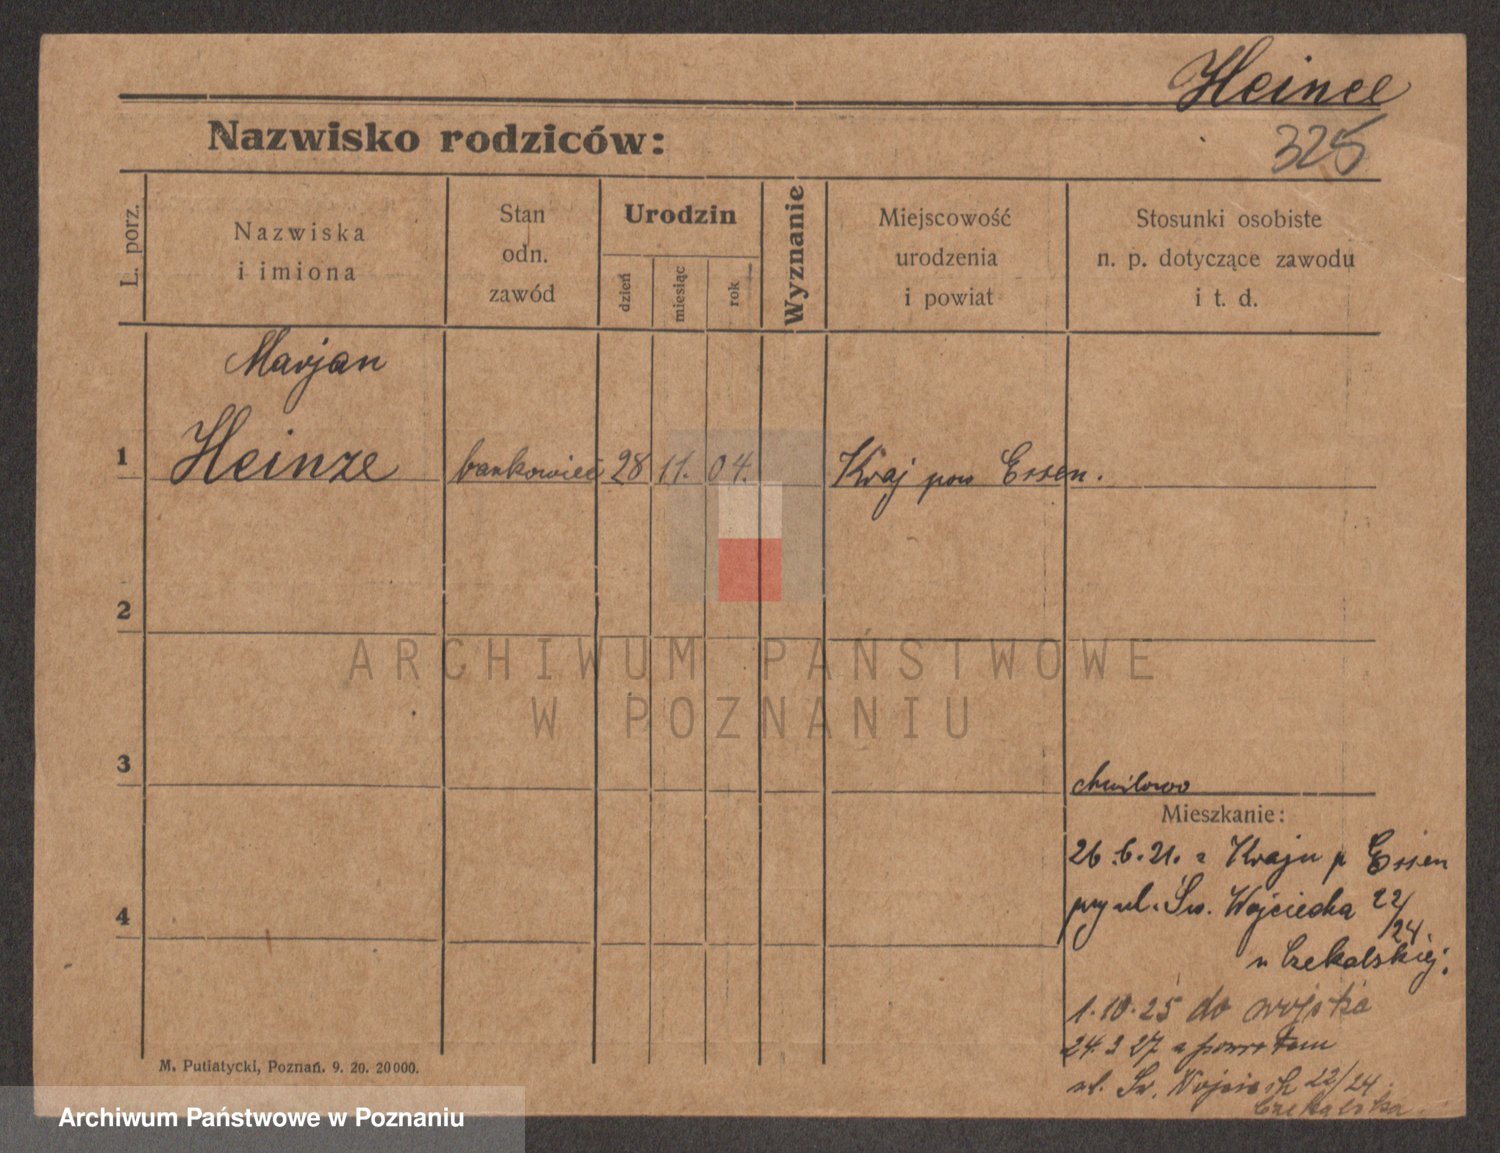 Heince
325
Nazwisko rodziców:
L. porz.
Nazwiska
i imiona
Stan
odn.
zawód
Urodzin
dzień
miesiąc
rok
Wyznanie
Miejscowość
urodzenia
i powiat
Stosunki osobiste
n. p. dotyczące zawodu
i t. d.
Marjan
1 Heinze bankowiec 28 11. 04. Kraj pow Essen.
2
ARCHIWUM PAŃSTWOWE
W POZNANIU
3
chwilowo
Mieszkanie:
26.6.21. z Kraju p Essen
przy ul. Św. Wojciecha 22/
24.
4
u Czekalskiej.
1.10.25 do wojska
24.9 27 z powrotem
ul. Św. Wojciech 22/24.
Czekalska
M. Putiatycki, Poznań. 9. 20. 20000.
Archiwum Państwowe w Poznaniu